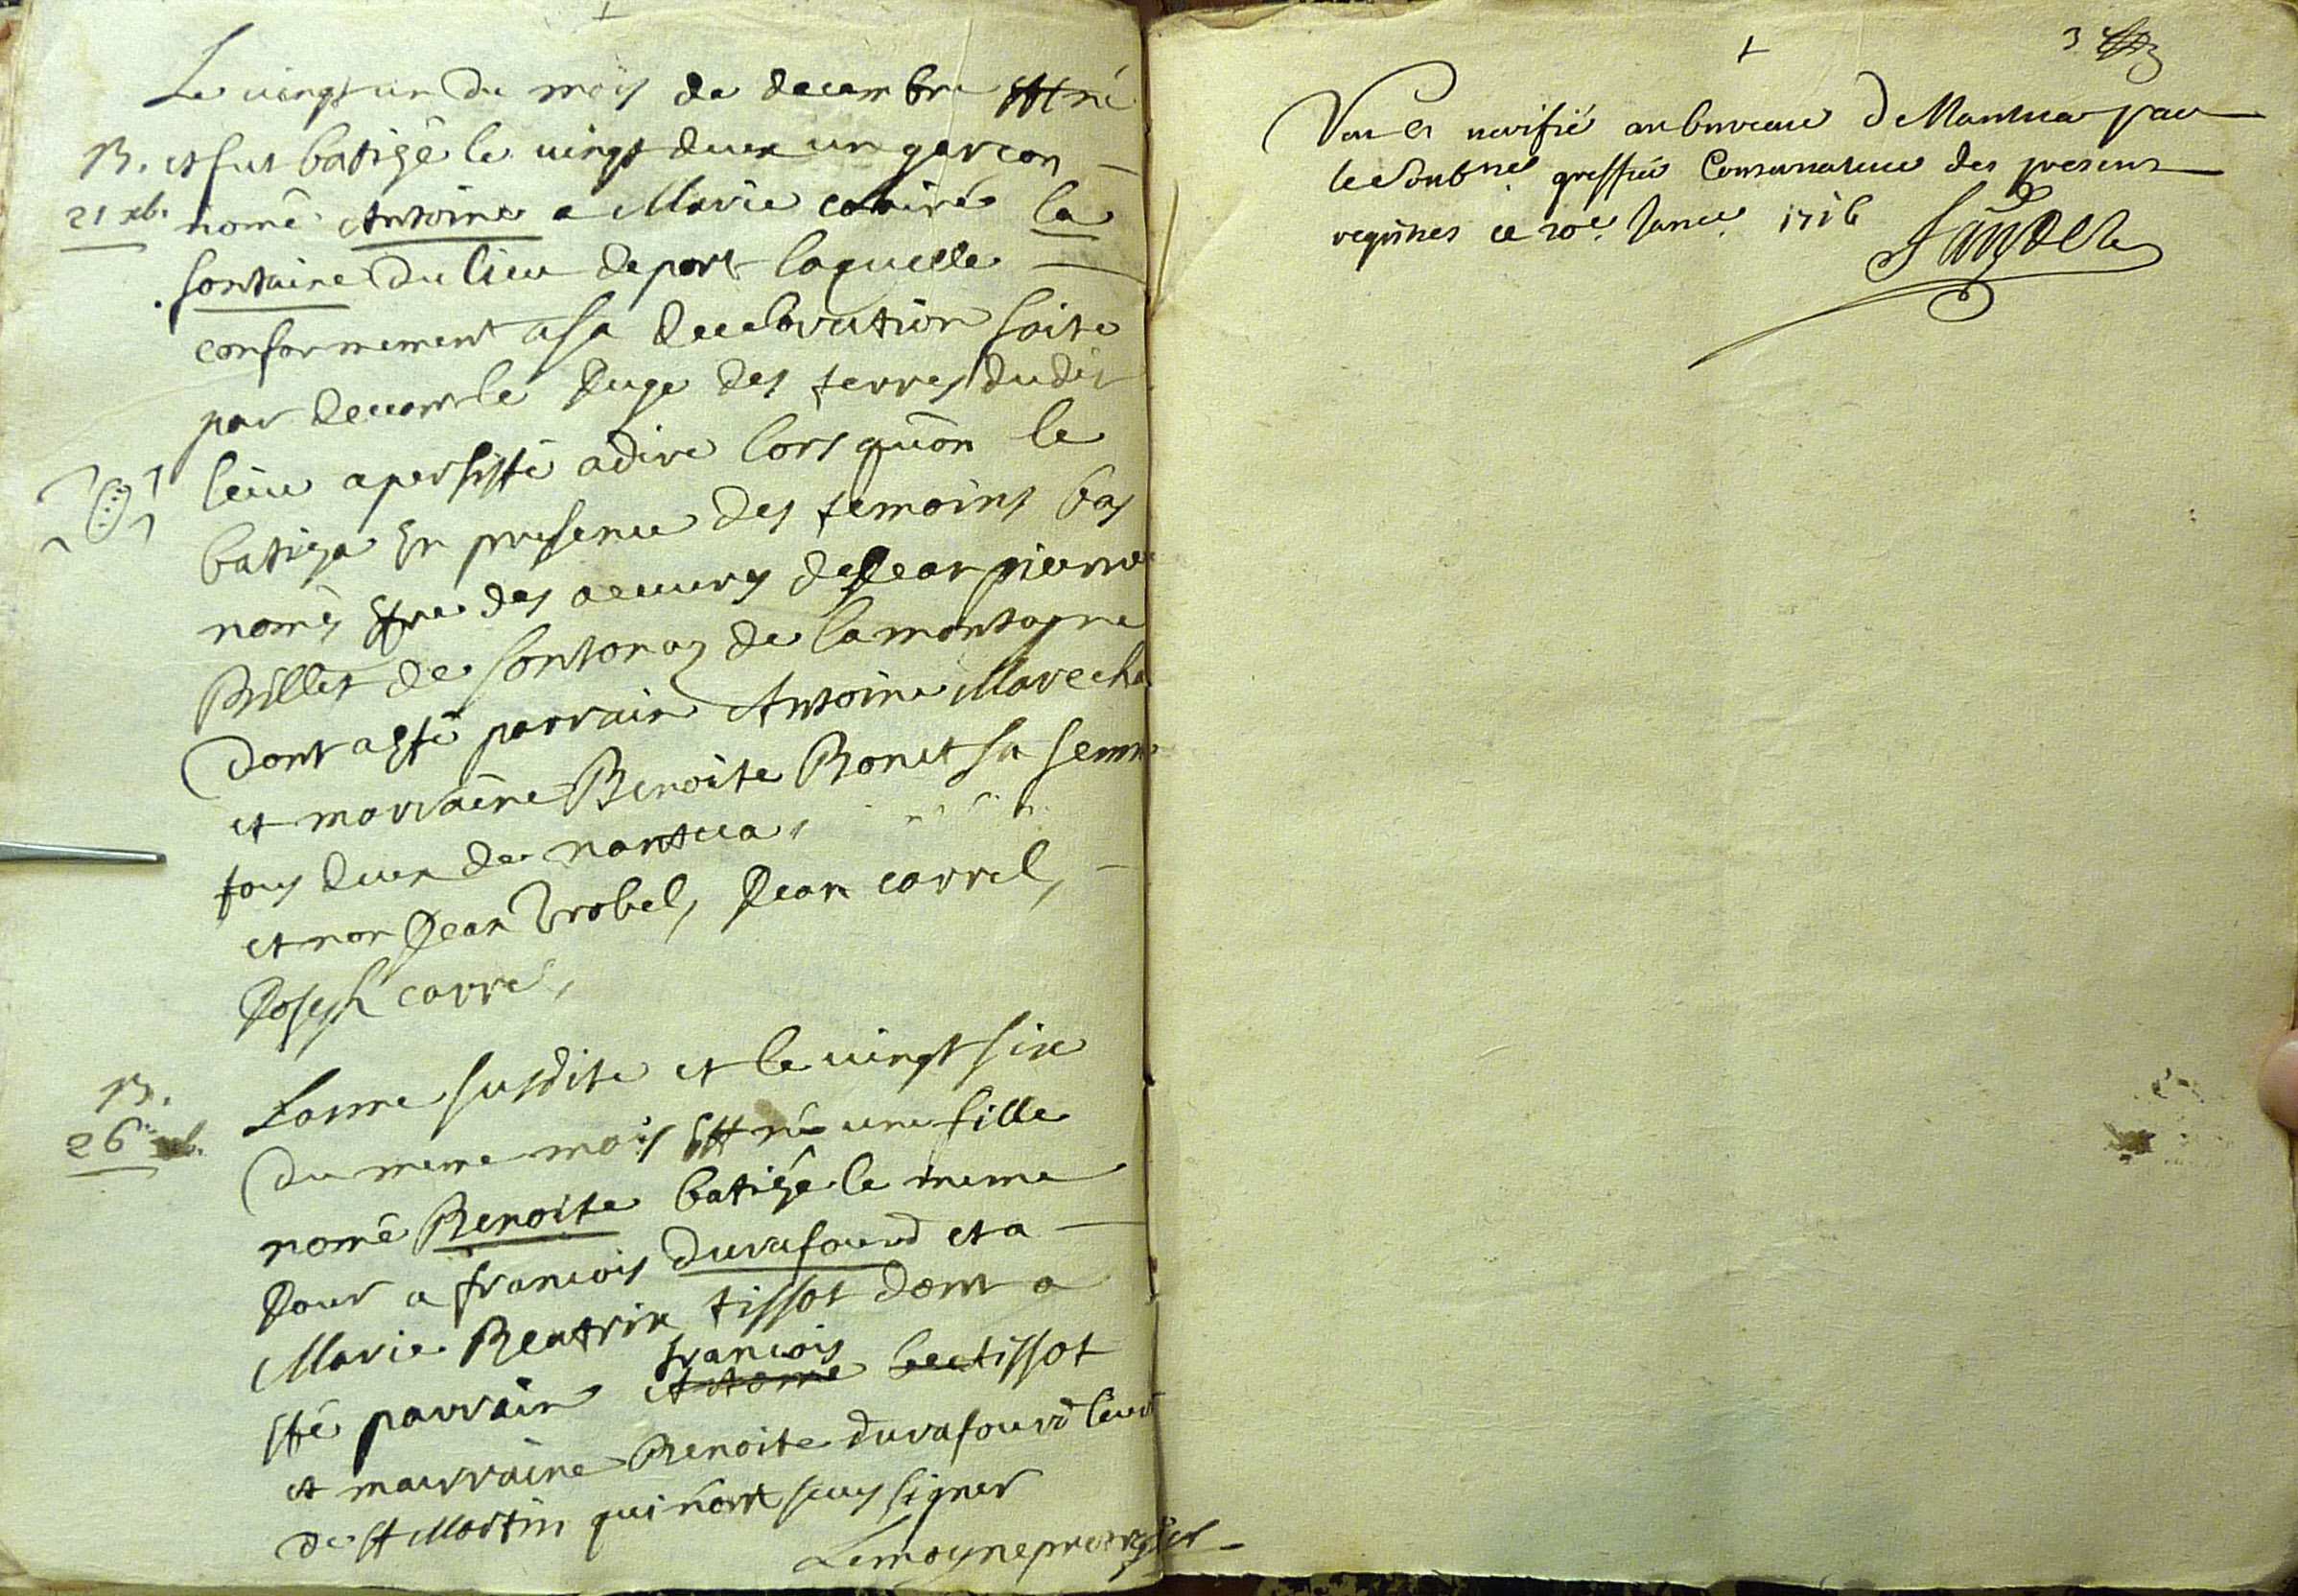 Le vingt un du mois de decembre est né
B. et fut batizé le vingt deux un garcon
21 xb. nomé Antoine a Marie claire la
fontaine du lieu de port laquelle
conformement a sa declaration faite
par devant le Juge des terres dudit
lieu a persisté a dire lors quon le
batiza En presence des temoins bas
només Etre des oeuvres de Jean pierre
Billet de fontonas de la montagne
dont a esté parrain Antoine Marechal
et marraine Benoite Bonet sa femme
tous deux de nantua,
et non Jean Jean carrel,
Joseph carrel,
B.
26 xb.
Lanne susdite et le vingt six
du meme mois Est né une fille
nomé Benoite batizé le meme
Jour a francois durafourd et a
Marie Beatrix tissot dont a
francois
Esté parrain Antoine tissot
et marraine Benoite durafourd
de st Martin qui nont sceus signer
Lemoyne
3
Veu et veriffié au bureau de Nantua par
le Soubné greffier Conservateur des presens
registres ce 20e Janer 1716